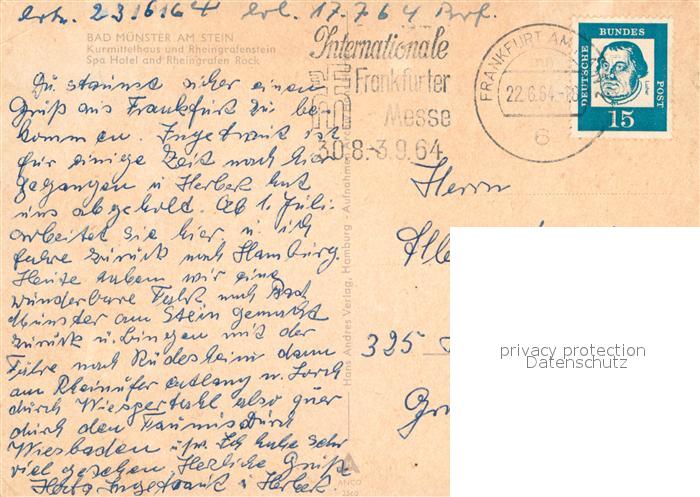 erh. 23/6/64 erl. 17.7.64 Brf.
BAD MÜNSTER AM STEIN
Kurmittelhaus und Rheingrafenstein
Spa Hotel and Rheingrafen Rock
Du staunst sicher einen
Gruß aus Frankfurt zu be-
kommen. Ingetraut ist
für einige Zeit nach hier
gegangen u. Herbert hat
uns abgeholt. Ab 1. Juli
arbeitet sie hier u. ich
fahre zurück nach Hamburg.
Heute haben wir eine
wunderbare Fahrt nach Bad
Münster am Stein gemacht
zurück u. Bingen mit der
Fähre nach Rüdesheim dann
am Rheinufer entlang u. Lorch
durch Wispertahl also quer
durch den Taunus durch
Wiesbaden usw. Ich habe sehr
viel gesehen. Herzliche Grüße
Herta Ingetraut u. Herbert.
Internationale
Frankfurter
Messe
30.8.-3.9.64
FRANKFURT AM MAIN
22.6.64
6
DEUTSCHE BUNDESPOST
Luther
15
Hans Andres Verlag, Hamburg - Aufnahmen
ANCO
Herrn
325
privacy protection
Datenschutz